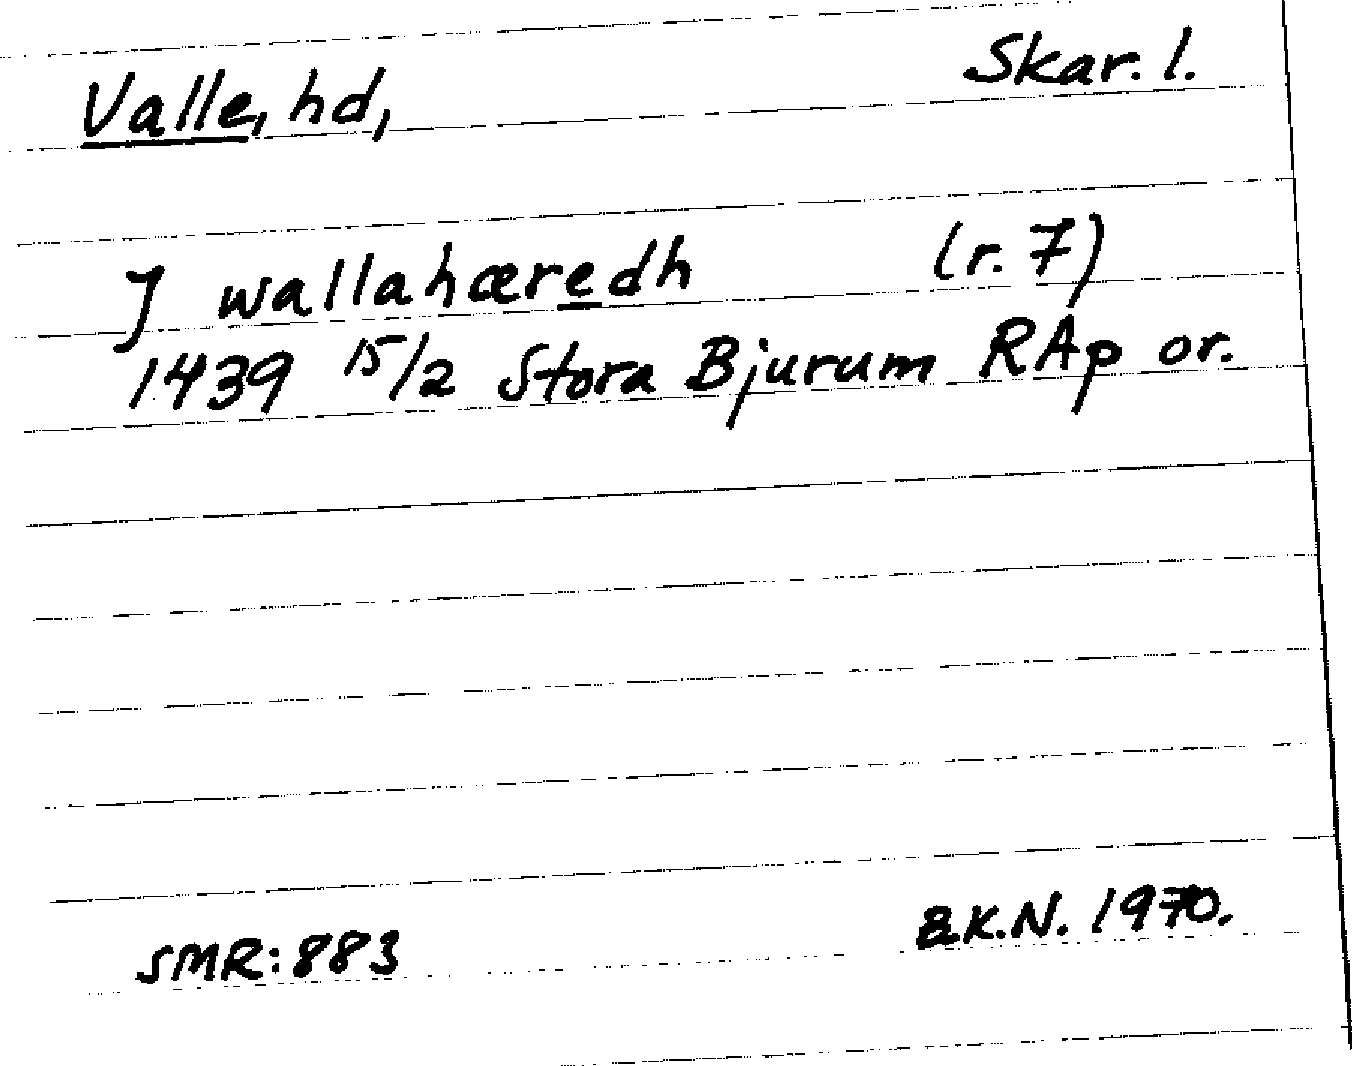 Valle, hd, Skar. l.
J wallahæredh (r. 7)
1439 15/2 Stora Bjurum RAp or.
SMR: 883 B.K.N. 1970.